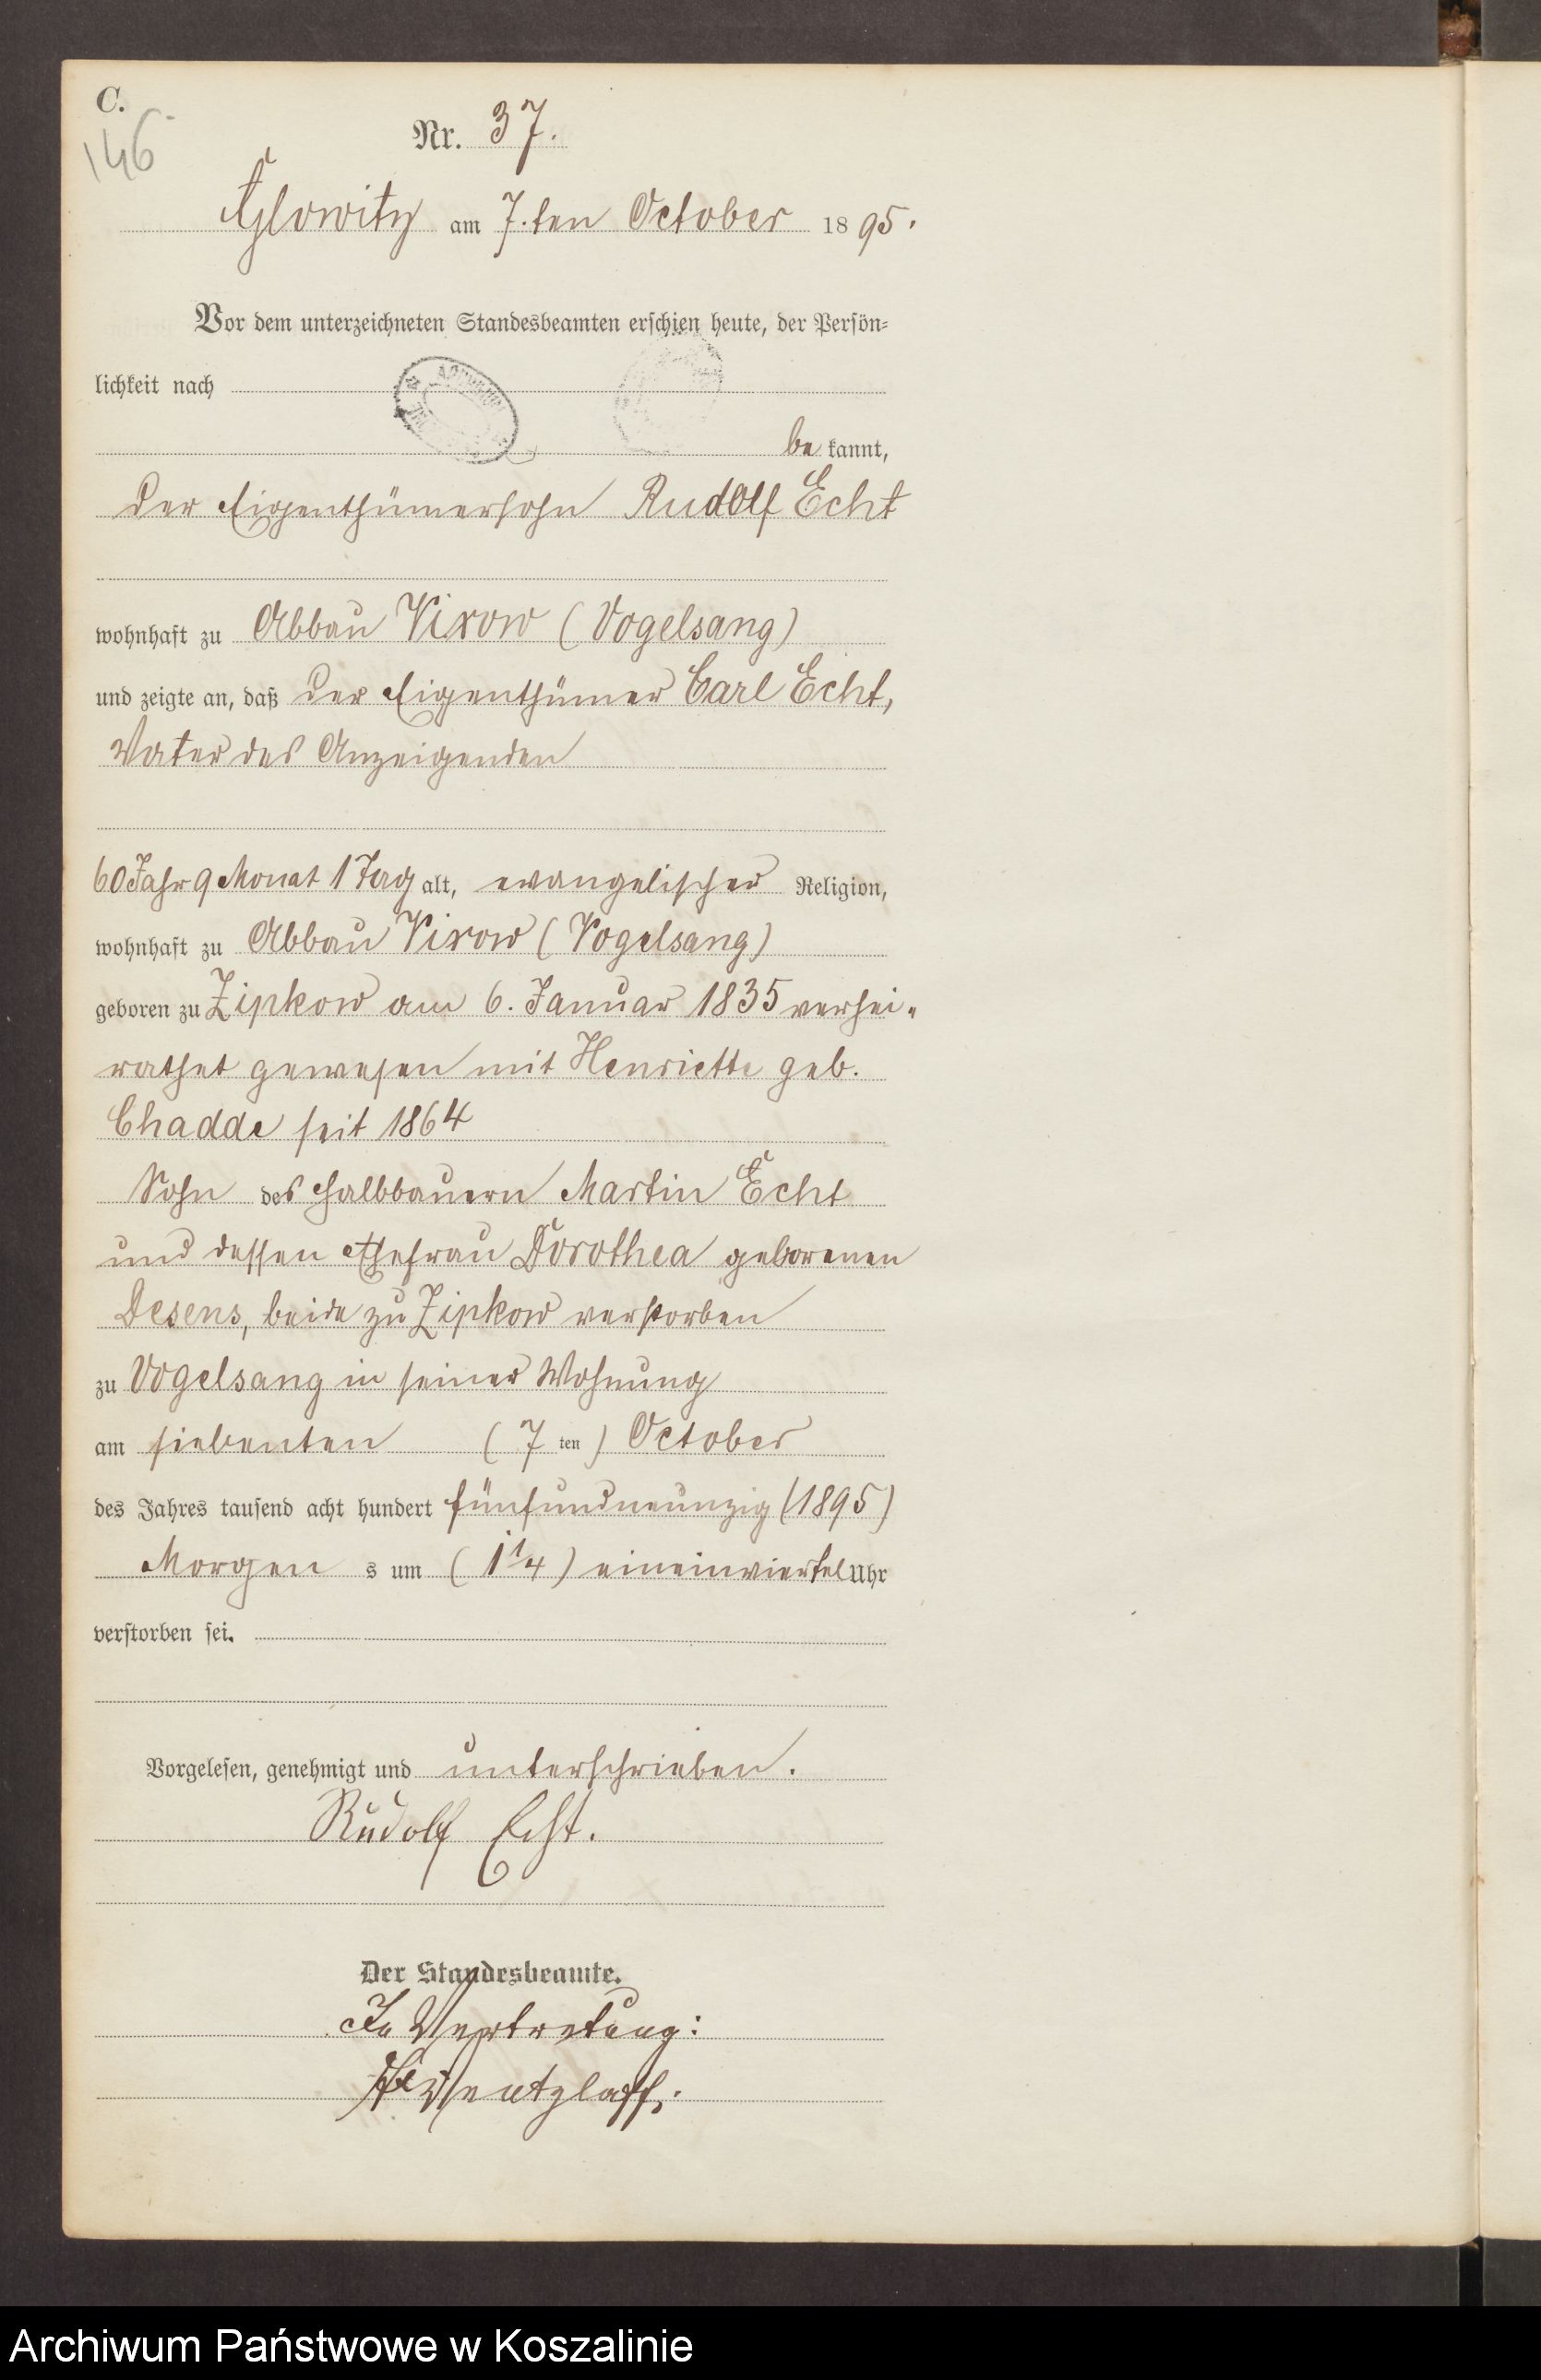 C.
146
Nr. 37.
Glowitz am 7.ten October 1895.
Vor dem unterzeichneten Standesbeamten erschien heute, der Persön-
lichkeit nach
bekannt,
der Eigenthümersohn Rudolf Echt
wohnhaft zu Abbau Vixow (Vogelsang)
und zeigte an, daß der Eigenthümer Carl Echt,
Vater des Anzeigenden
60 Jahr 9 Monat 1 Tag alt, evangelischer Religion,
wohnhaft zu Abbau Vixow (Vogelsang)
geboren zu Zipkow am 6. Januar 1835 verhei-
rathet gewesen mit Henriette geb.
Chadde seit 1864
Sohn des Halbbauern Martin Echt
und dessen Ehefrau Dorothea geborenen
Desens, beide zu Zipkow verstorben
zu Vogelsang in seiner Wohnung
am siebenten (7ten) October
des Jahres tausend acht hundert fünfundneunzig (1895)
Morgens um (1 1/4) eineinviertel Uhr
verstorben sei.
Vorgelesen, genehmigt und unterschrieben.
Rudolf Echt.
Der Standesbeamte.
In Vertretung:
Wentzlaff.
Archiwum Państwowe w Koszalinie